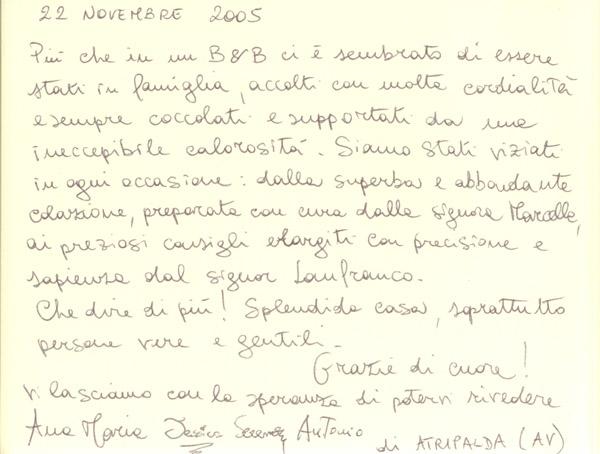 22 NOVEMBRE 2005
Più che in un B&B ci è sembrato di essere
stati in famiglia, accolti con molta cordialità
e sempre coccolati e supportati da una
ineccepibile calorosità. Siamo stati viziati
in ogni occasione: dalla superba e abbondante
colazione, preparata con cura dalla signora Marcella,
ai preziosi consigli elargiti con precisione e
sapienza dal signor Lanfranco.
Che dire di più! Splendida casa, soprattutto
persone vere e gentili.
Grazie di cuore!
Vi lasciamo con la speranza di potervi rivedere
Ana Maria Antonio
di ATRIPALDA (AV)